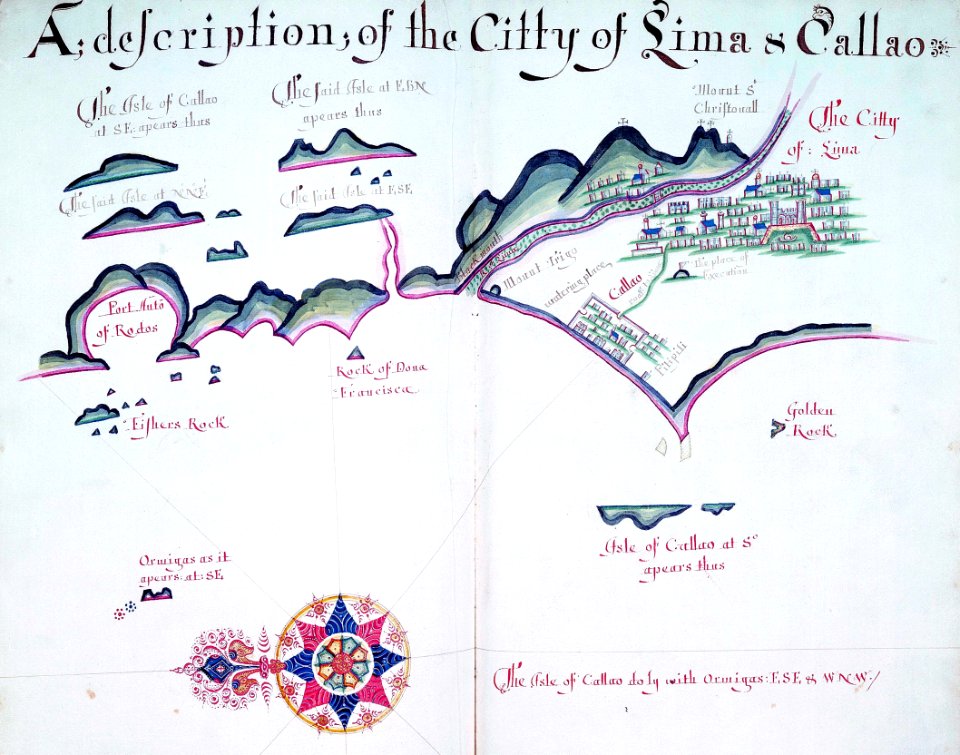 A; description; of the Citty of Lima & Callao
The Isle of Callao
at SE: apears thus
The said Isle at EBN
apears thus
Mount St
Christovall
The Citty
of: Lima
The said Isle at NNE
The said Isle at ESE
Mount Trigo
watering place
Callao
The place of
Execution
Pitipiti
Port
of Rodos
Rock of Dona
Francisca
Fishers Rock
Golden
Rock
Isle of Callao at So
apears thus
Ormigas as it
apears: at: SE
The Isle of Callao do ly with Ormigas: E,S,E, & W N,W,/